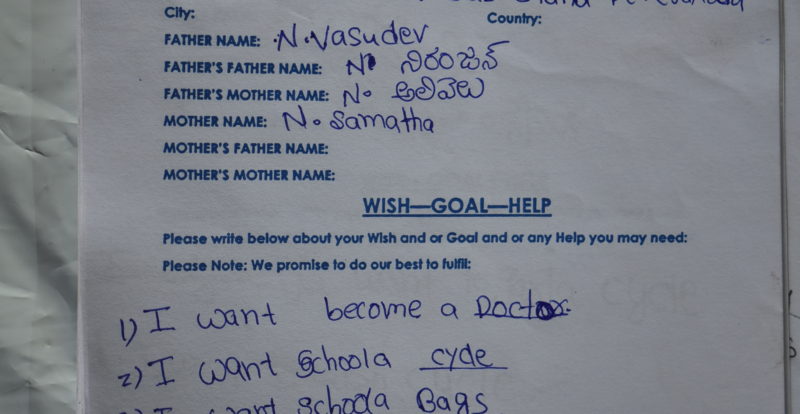 City:
Country:
FATHER NAME: N. Vasudev
FATHER'S FATHER NAME: N. నిరంజన్
FATHER'S MOTHER NAME: N. అలివేలు
MOTHER NAME: N. Samatha
MOTHER'S FATHER NAME:
MOTHER'S MOTHER NAME:
WISH—GOAL—HELP
Please write below about your Wish and or Goal and or any Help you may need:
Please Note: We promise to do our best to fulfil:
1) I want become a Doctor.
2) I want Schoola cycle
I want Schoola Bags